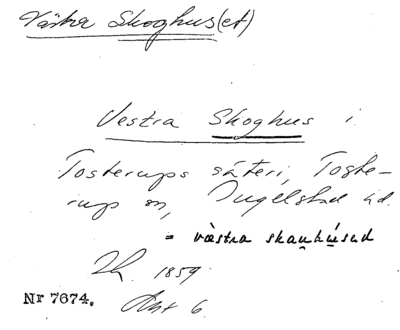 Västra Skoghus(et)
Vestra Skoghus i
Tosterups säteri, Toste-
rups sn, Ingelstad hd.
= västra skau̯húsəd
1859.
Nr 7674. Akt 6